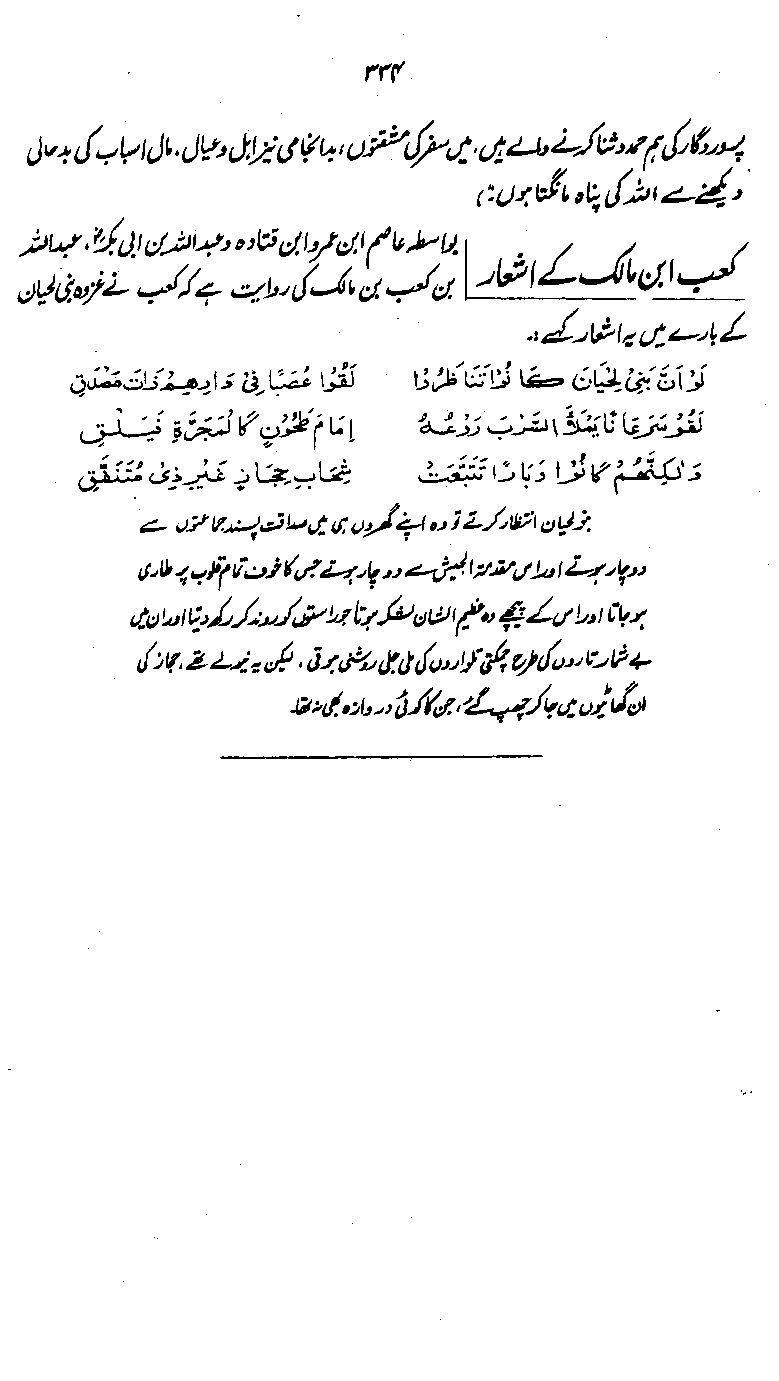 ۳۳۴
پروردگار کی ہم حمد و ثنا کرنے والے ہیں، میں سفر کی مشقتوں، بدانجامی نیز اہل و عیال، مال اسباب کی بدحالی
دیکھنے سے اللہ کی پناہ مانگتا ہوں:)
کعب ابن مالک کے اشعار
بواسطہ عاصم ابن عمرو ابن قتادہ و عبداللہ بن ابی بکرؓ، عبداللہ
بن کعب بن مالک کی روایت ہے کہ کعب نے غزوہ بنی لحیان
کے بارے میں یہ اشعار کہے :۔
لَوْ اَنَّ بَنِیْ لِحْیَانَ کَانُوْا تَنَاظَرُوْا لَقُوْا عُصَبًا فِیْ دَارِھِمْ ذَاتَ مَصْدَقِ
لَقُوْ سَرَعَانًا یَمْلَأُ السَّرْبَ رَوْعُہُ اِمَامَ طَحُوْنٍ کَالْمَجَرَّةِ فَیْلَقِ
وَلٰکِنَّھُمْ کَانُوْا وِبَارًا تَتَبَّعَتْ شِعَابَ حِجَازٍ غَیْرِ ذِیْ مُتَنَفَّقِ
بنو لحیان انتظار کرتے تو وہ اپنے گھروں ہی میں صداقت پسند جماعتوں سے
دو چار ہوتے اور اس مقدمۃ الجیش سے دو چار ہوتے جس کا خوف تمام قلوب پر طاری
ہو جاتا اور اس کے پیچھے وہ عظیم الشان لشکر ہوتا جو راستوں کو روند کر رکھ دیتا اور ان میں
بے شمار تاروں کی طرح چمکتی تلواروں کی ملی جلی روشنی ہوتی، لیکن یہ نیولے تھے، حجاز کی
ان گھاٹیوں میں جا کر چھپ گئے، جن کا کوئی دروازہ بھی نہ تھا۔